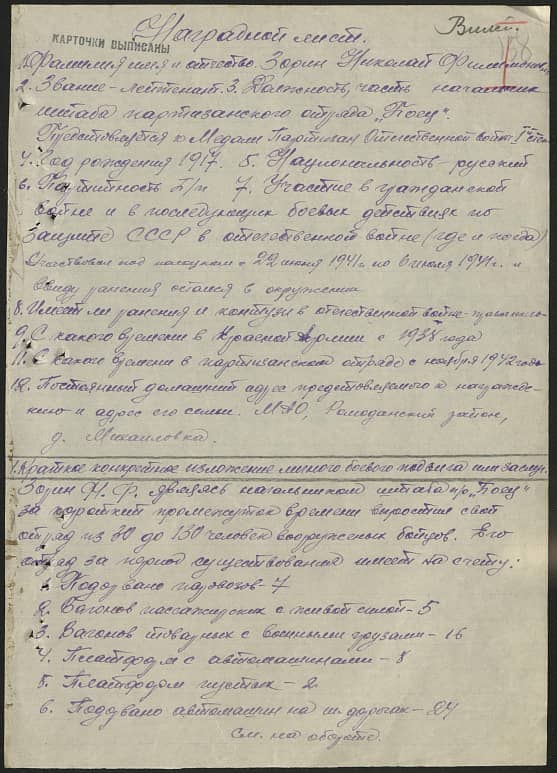 Наградной лист.
КАРТОЧКИ ВЫПИСАНЫ
1. Фамилия имя и отчество. Зорин Николай Филимонович
2. Звание - лейтенант. 3. Должность, часть начальник
штаба партизанского отряда „Боец“.
Представляется к Медали Партизан Отечественной войны I степ.
4. Год рождения 1917. 5. Национальность - русский
6. Партийность б/п 7. Участие в гражданской
войне и в последующих боевых действиях по
защите СССР в отечественной войне (где и когда)
Участвовал под полоцком с 22 июня 1941 г. по 6 июля 1941 г. и
ввиду ранения остался в окружении
8. Имеет ли ранения и контузии в отечественной войне -
9. С какого времени в Красной Армии с 1938 года
11. С какого времени в партизанском отряде с ноября 1942 года
12. Постоянный домашний адрес представляемого к награжде-
нию и адрес его семьи. Ромодановский район,
д. Михайловка.
1. Краткое конкретное изложение личного боевого подвига или заслуг.
Зорин Н. Ф. являясь начальником штаба п/о „Боец“
за короткий промежуток времени вырастил свой
отряд из 30 до 130 человек вооруженых бойцов. Его
отряд за период существования имеет на счету:
1. Подорвано паровозов - 7
2. Вагонов пассажирских с живой силой - 5
3. Вагонов товарных с военными грузами - 16
4. Платформ с автомашинами - 8
5. Платформ пустых - 2
6. Подорвано автомашин на ш. дорогах - 24
см. на обороте.